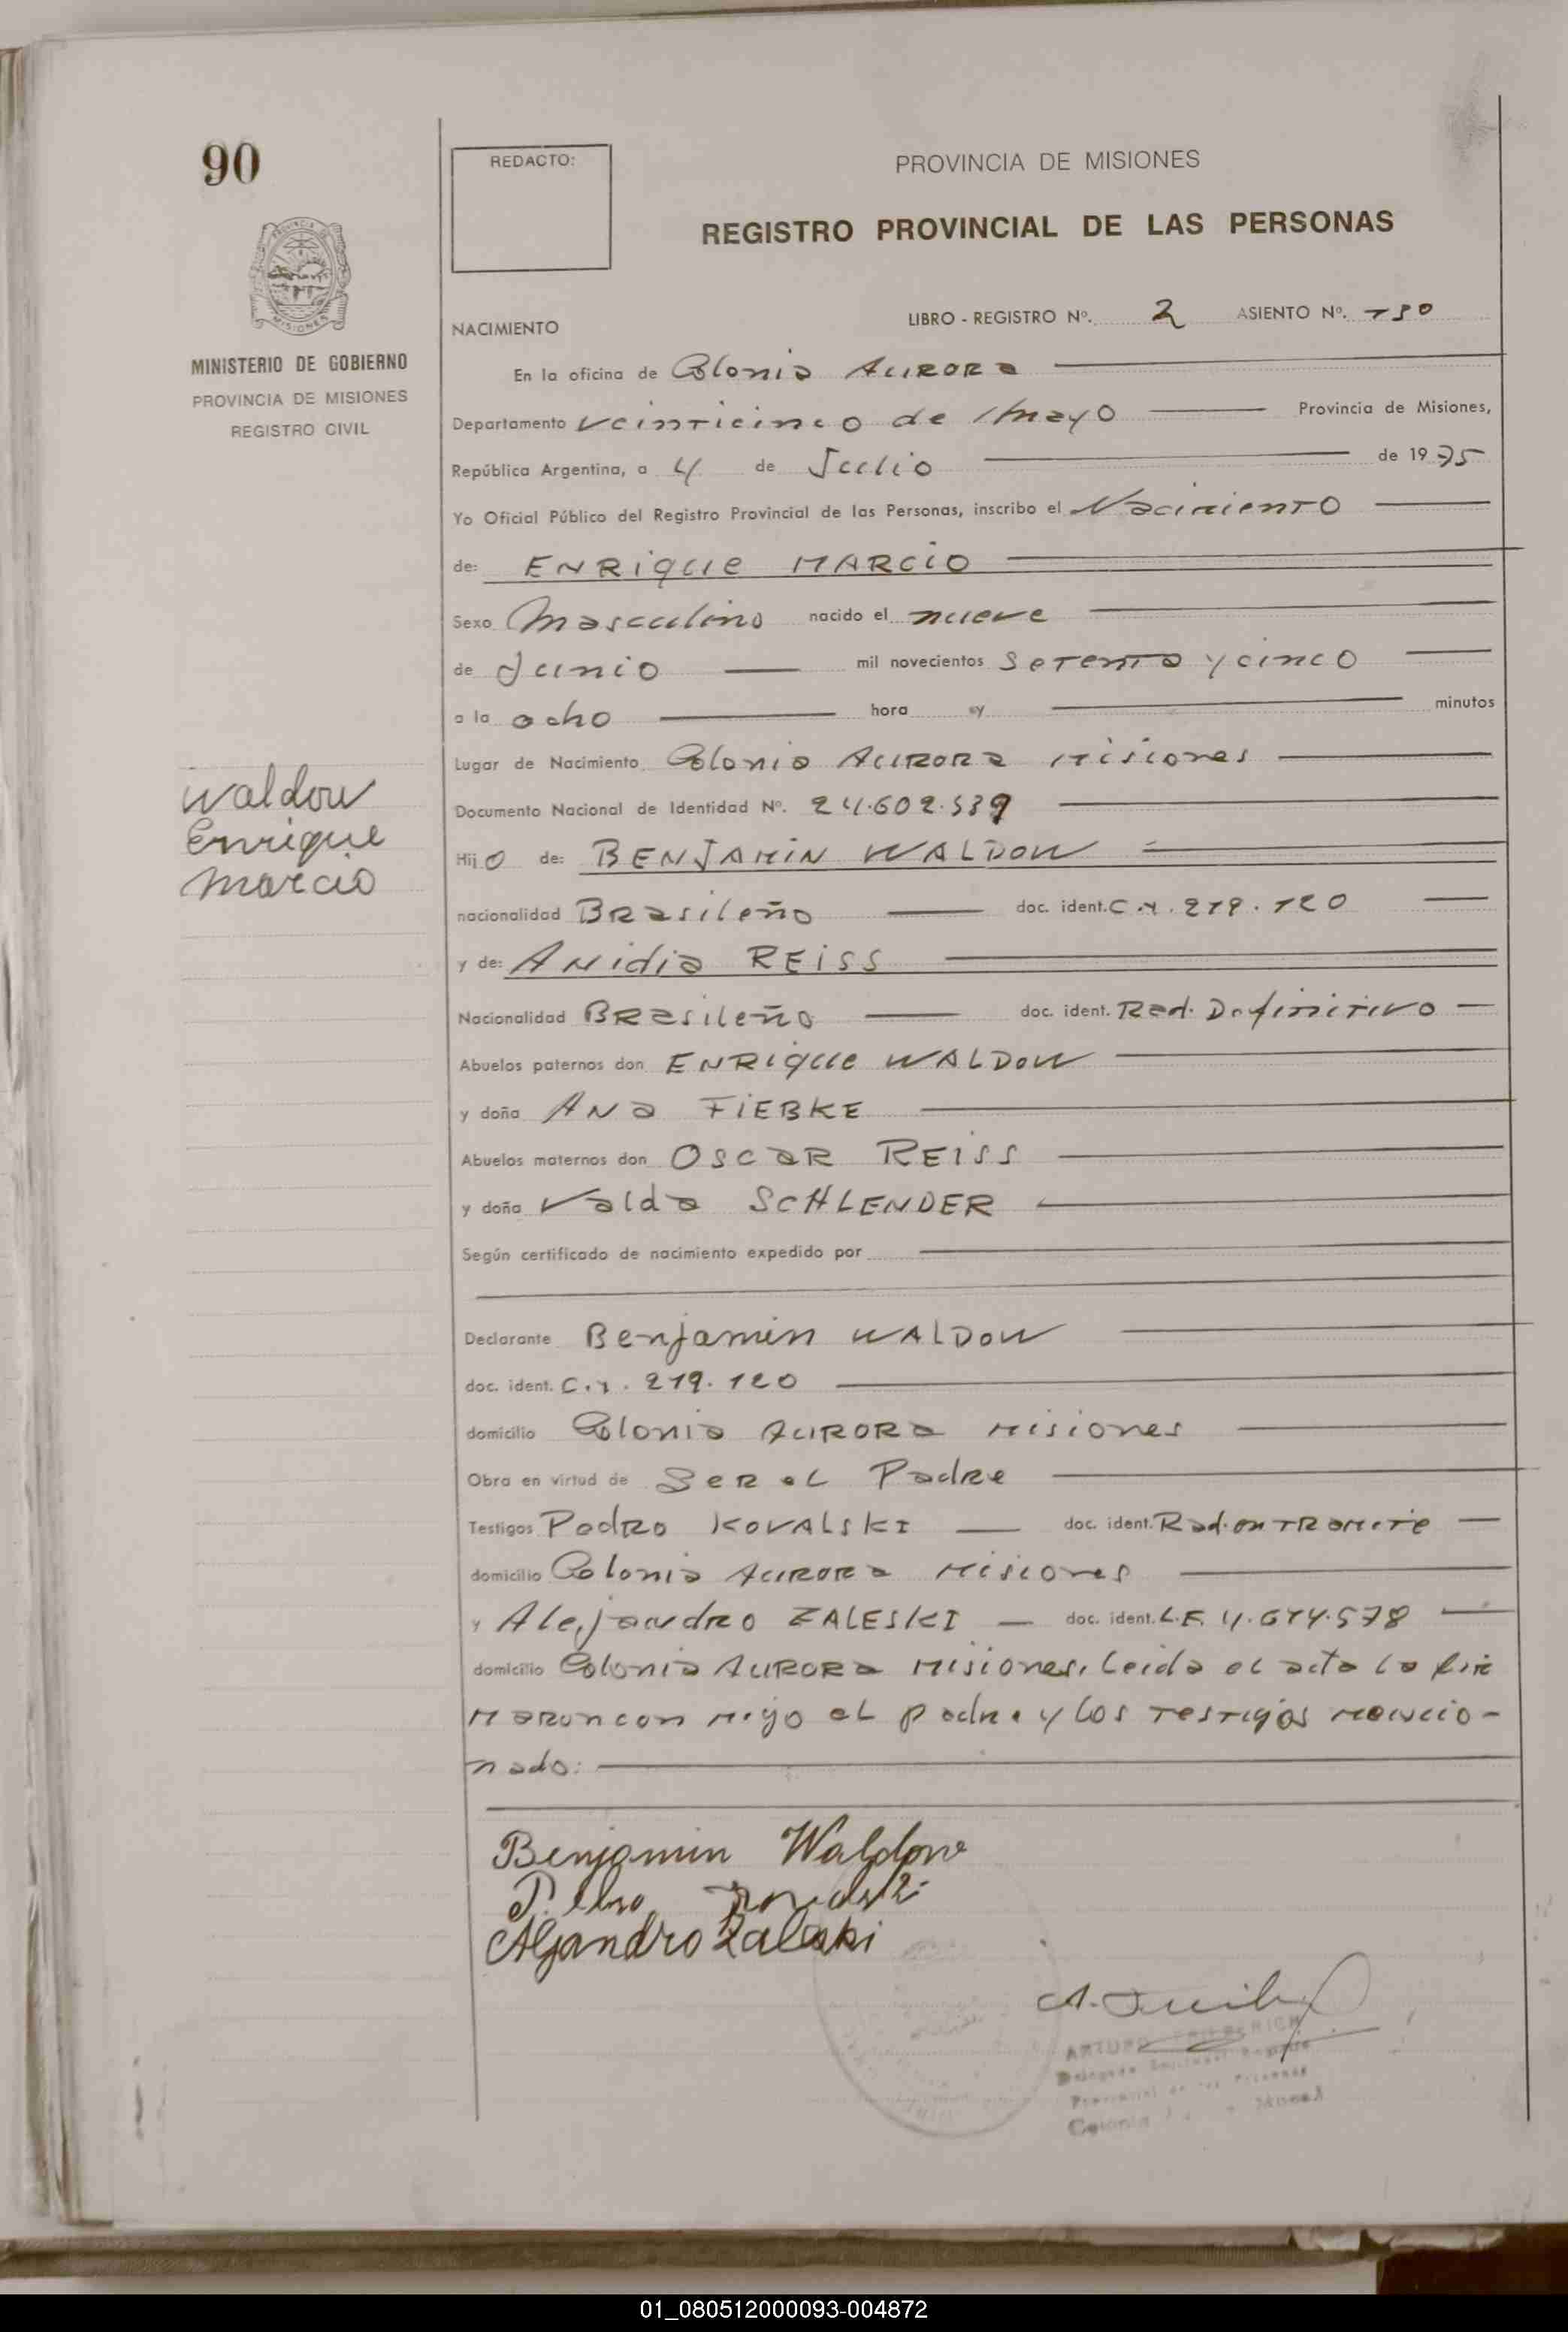 90
REDACTO:
PROVINCIA DE MISIONES
REGISTRO PROVINCIAL DE LAS PERSONAS
MISIONES
MINISTERIO DE GOBIERNO
PROVINCIA DE MISIONES
REGISTRO CIVIL
NACIMIENTO
LIBRO - REGISTRO Nº. 2 ASIENTO Nº.
En la oficina de Colonia AURORA
Departamento veinticinco de Mayo Provincia de Misiones,
República Argentina, a 4 de Julio de 1975
Yo Oficial Público del Registro Provincial de las Personas, inscribo el Nacimiento
de: ENRIQUE MARCIO
Sexo Masculino nacido el nueve
de Junio mil novecientos setenta y cinco
a la ocho hora y minutos
Lugar de Nacimiento Colonia AURORA Misiones
Documento Nacional de Identidad Nº. 24.602.539
Waldow
Enrique
Marcio
Hijo de: BENJAMIN WALDOW
nacionalidad Brasileño doc. ident. C.Y. 219.120
y de: Anidia REISS
Nacionalidad Brasileño doc. ident. Rad. Definitivo
Abuelos paternos don ENRIQUE WALDOW
y doña Ana FIEBKE
Abuelos maternos don Oscar REISS
y doña Valda SCHLENDER
Según certificado de nacimiento expedido por
Declarante Benjamin WALDOW
doc. ident. C.Y. 219.120
domicilio Colonia AURORA Misiones
Obra en virtud de Ser el Padre
Testigos Pedro KOVALSKI doc. ident. Rad. en TRamite
domicilio Colonia AURORA Misiones
y Alejandro ZALESKI doc. ident. L.E. 4.674.578
domicilio Colonia AURORA Misiones, Leida el acta la fir
maron con migo el padre y los testigos mencio-
nado:
Benjamin Waldow
Aljandro Zaleski
ARTURO
Provincial de las Personas
Colonia
01_080512000093-004872